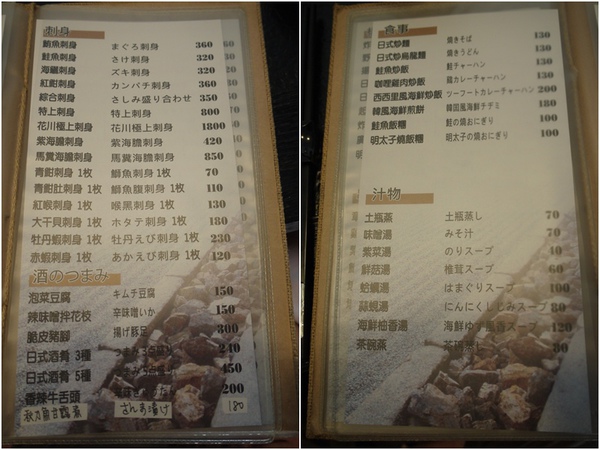 刺身
鮪魚刺身 まぐろ刺身 360
鮭魚刺身 さけ刺身 320
海鱺刺身 ズキ刺身 320
紅魽刺身 カンパチ刺身 360
綜合刺身 さしみ盛り合わせ 350
特上刺身 特上刺身 800
花川極上刺身 花川極上刺身 1800
紫海膽刺身 紫海膽刺身 420
馬糞海膽刺身 馬糞海膽刺身 850
青魽刺身 1枚 鰤魚刺身 1枚 70
青魽肚刺身 1枚 鰤魚腹刺身 1枚 110
紅喉刺身 1枚 喉黑刺身 1枚 130
大干貝刺身 1枚 ホタテ刺身 1枚 180
牡丹蝦刺身 1枚 牡丹えび刺身 1枚 230
赤蝦刺身 1枚 あかえび刺身 1枚 120
酒のつまみ
泡菜豆腐 キムチ豆腐 150
辣味噌拌花枝 辛味噌いか 150
脆皮豬腳 揚げ豚足 300
日式酒肴 3種 つまみ3点盛り 240
日式酒肴 5種 つまみ5点盛り 450
香辣牛舌頭 200
秋刀魚甘露煮 さんま漬け 180
食事
日式炒麵 焼きそば 130
日式炒烏龍麵 焼きうどん 130
鮭魚炒飯 鮭チャーハン 130
咖哩雞肉炒飯 鶏カレーチャーハン 130
西西里風海鮮炒飯 ツーフートカレーチャーハン 200
韓風海鮮煎餅 韓国風海鮮チヂミ 180
鮭魚飯糰 鮭の焼おにぎり 100
明太子燒飯糰 明太子の焼おにぎり 100
汁物
土瓶蒸 土瓶蒸し 70
味噌湯 みそ汁 70
紫菜湯 のりスープ 40
鮮菇湯 椎茸スープ 60
蛤蠣湯 はまぐりスープ 100
蒜蜆湯 にんにくしじみスープ 80
海鮮柚香湯 海鮮ゆず風香スープ 120
茶碗蒸 茶碗蒸し 80